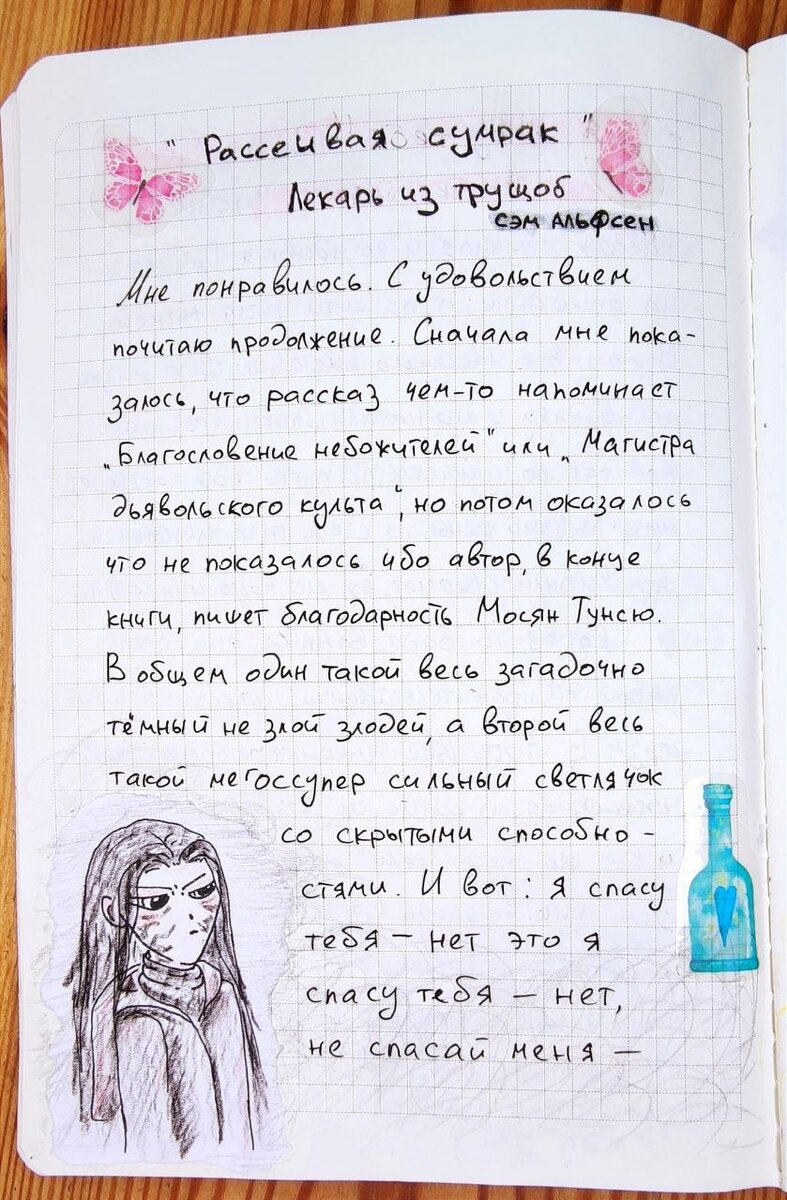 " Рассеивая сумрак "
Лекарь из трущоб
сэм Альфсен
Мне понравилось. С удовольствием
почитаю продолжение. Сначала мне пока-
залось, что рассказ чем-то напоминает
„Благословение небожителей" или „Магистра
дьявольского культа", но потом оказалось
что не показалось ибо автор, в конце
книги, пишет благодарность Мосян Тунсю.
В общем один такой весь загадочно
тёмный не злой злодей, а второй весь
такой мегоссупер сильный светлячок
со скрытыми способно-
стями. И вот: я спасу
тебя — нет это я
спасу тебя — нет,
не спасай меня —